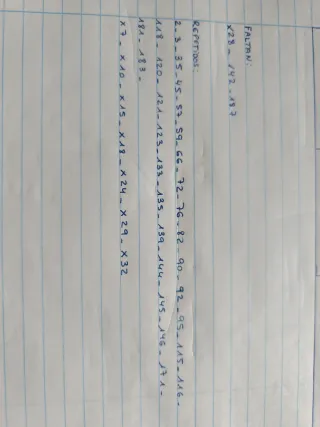 FALTAN:
X28 - 142 - 187
REPETIDOS:
2 - 3 - 35 - 45 - 57 - 59 - 66 - 72 - 76 - 82 - 90 - 92 - 95 - 115 - 116 -
118 - 120 - 121 - 123 - 133 - 135 - 139 - 144 - 145 - 146 - 171 -
181 - 183 -
X7 - X10 - X15 - X18 - X24 - X29 - X32